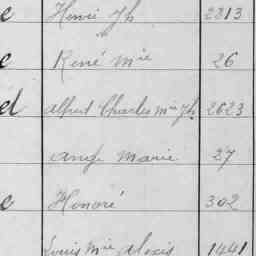 e Henri Jh 2813
e René Mie 26
el Alfred Charles Mie Jh 2623
Ange Marie 27
e Honoré 302
Louis Mie Alexis 1441